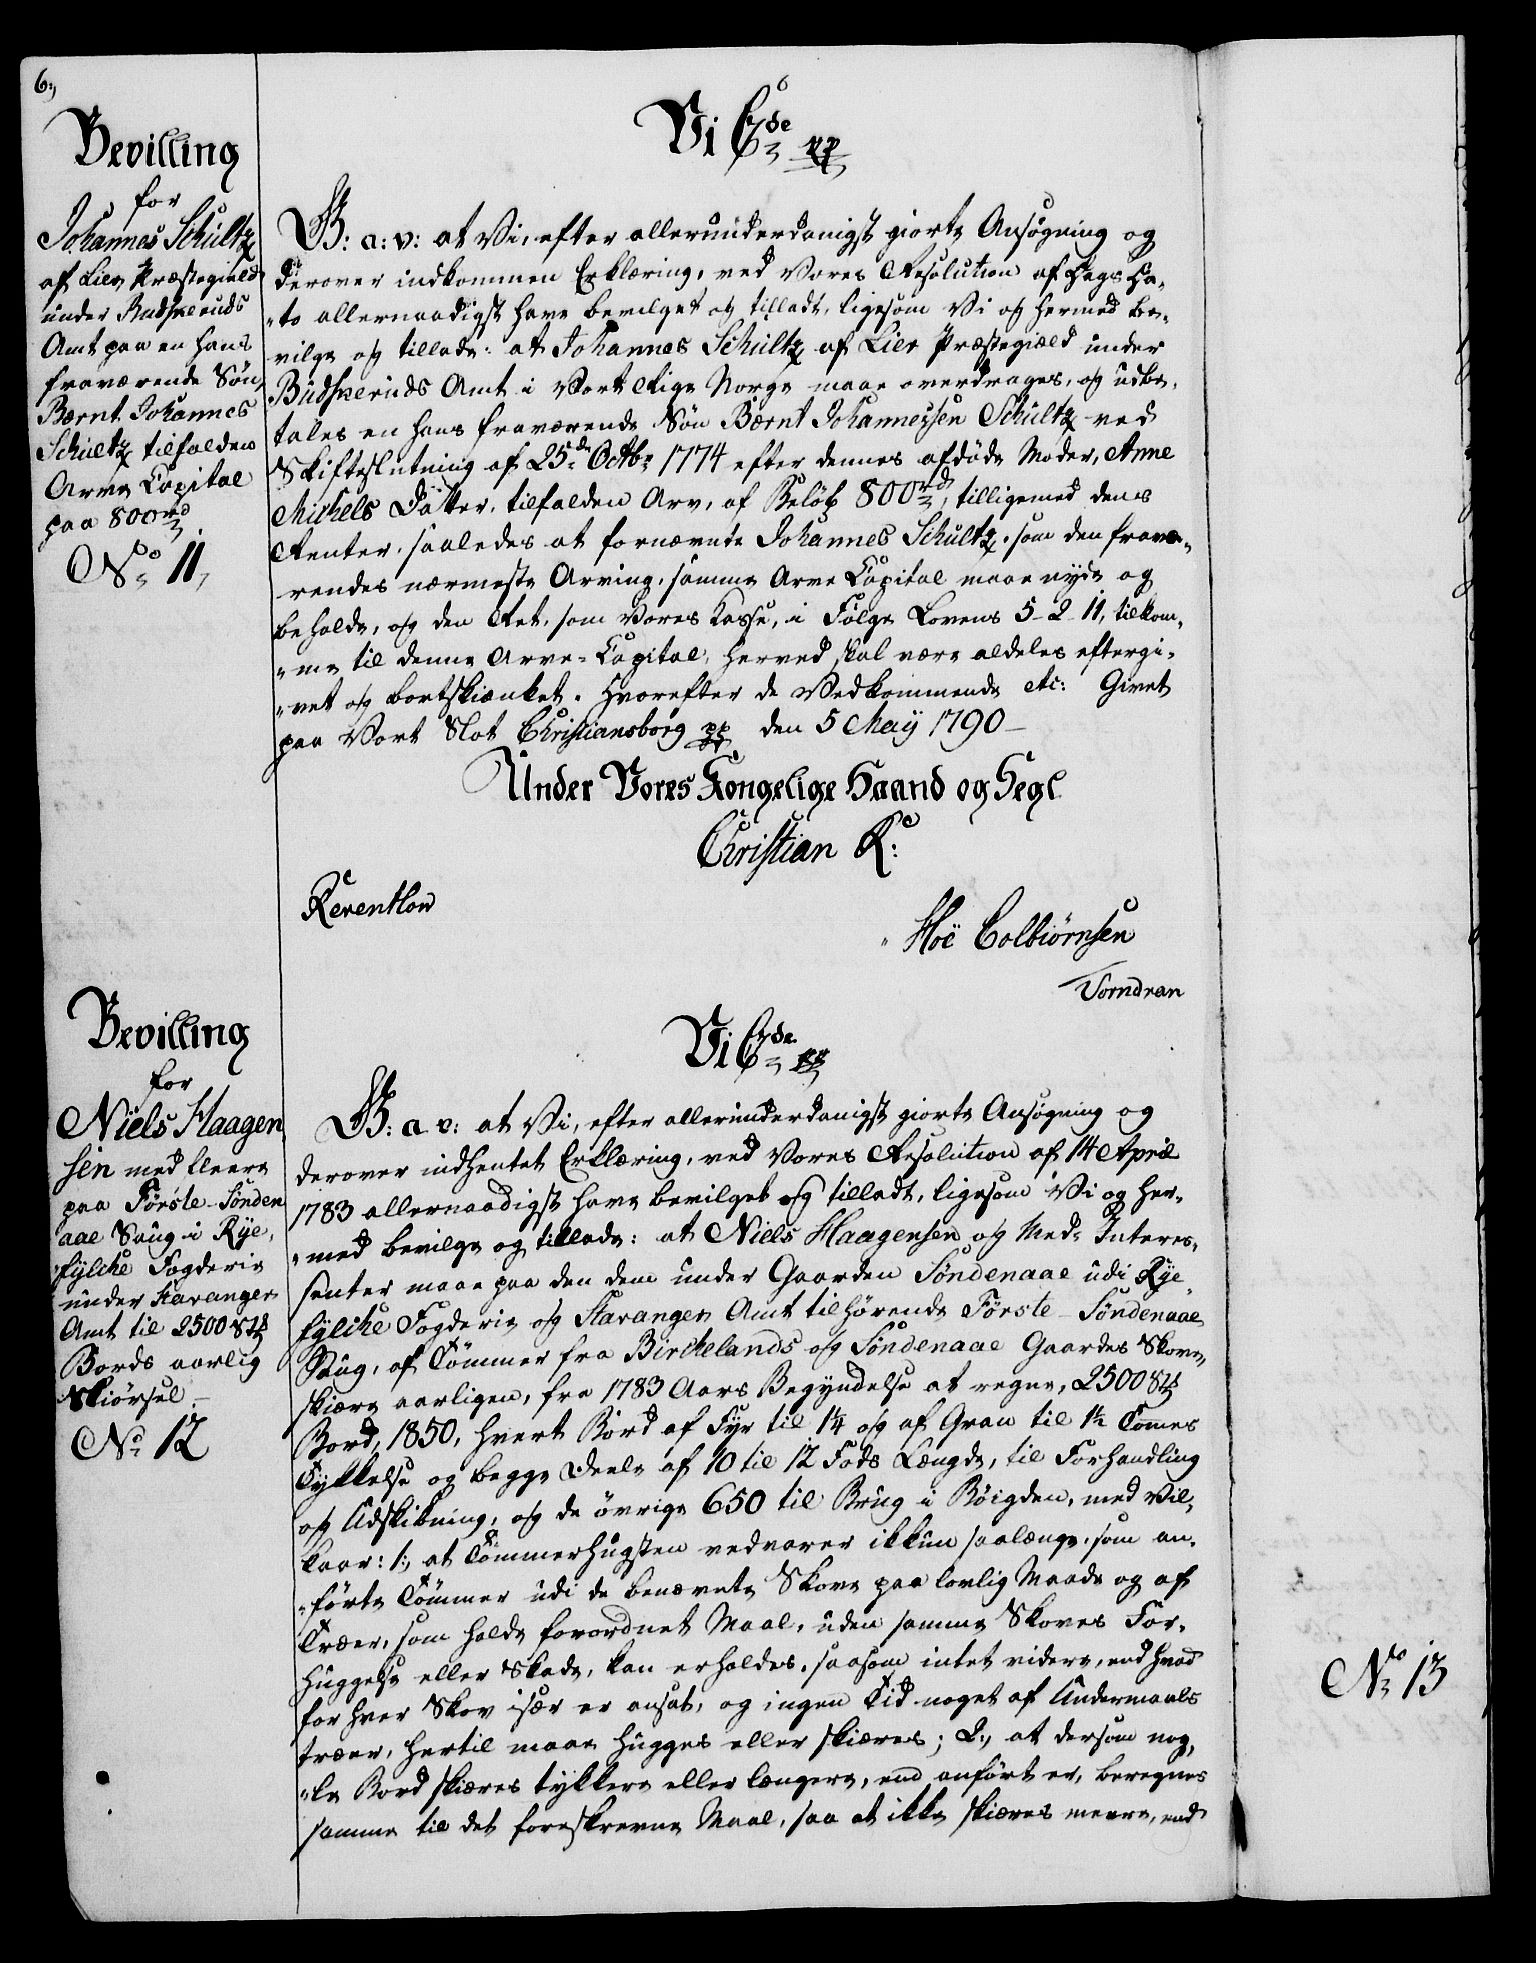 6.,
Bevilling
for
Johannes Schultz
af Lier Præstegield
under Budskeruds
Amt paa en hans
fraværende Søn,
Bærnt Johannes
Schultz tilfalden
Arve Capital
paa 800 rd
No 11,
Vi C 7de pp
G: a: v: at Vi, efter allerunderdanigst giorte Ansøgning og
derover indkommen Erklæring, ved Vores Resolution af Dags Da-
"to allernaadigst have bevilget og tilladt, ligesom Vi og hermed be-
vilge og tillade: at Johannes Schultz af Lier Præstegiæld under
Budskeruds Amt i Vort Rige Norge maae overdrages, og udbe-
tales en hans fraværende Søn Bærnt Johannessen Schultz ved
Skifteslutning af 25de Octbr 1774 efter dennes afdøde Moder, Anne
Michels Datter, tilfalden Arv, af Beløb 800 rd, tilligemed dens
Renter, saaledes at fornævnte Johannes Schultz, som den fravæ-
rendes nærmeste Arving, samme Arve Capital maae nyde og
beholde, og den Ret, som Vores Kasse, i Følge Lovens 5-2-11, tilkom-
"me til denne Arve-Capital, herved skal være aldeles eftergi-
"vet og bortskienket. Hvorefter de Vedkommende etc: Givet
paa Vort Slot Christiansborg pp den 5 May 1790
Under Vores Kongelige Haand og Segl
Christian R:
Reventlow
Hoë Colbiørnsen
Vorndran
Bevilling
for
Niels Haagen
sen med fleere
paa Første-Sønden
aae Saug i Rye,
fylche Fogderie
under Stavanger
Amt til 2500 St
Bords aarlig
Skiørsel
No 12
Vi C 7de pp
G: a v: at Vi, efter allerunderdanigst giorte Ansøgning og
derover indhentet Erklæring, ved Vores Resolution af 14 April
1783 allernaadigst have bevilget og tilladt, ligesom Vi og her-
"med bevilge og tillade: at Niels Haagensen og Med-Interes-
senter maae paa den dem under Gaarden Søndenaae udi Rye
fylche Fogderie og Stavanger Amt tilhørende Første-Søndenaae
Saug, af Tømmer fra Birchelands og Søndenaae Gaardes Skove,
skiære aarligen, fra 1783 Aars Begyndelse at regne, 2500 St
Bord, 1850, hvert Bord af Fyr til 1¼ og af Gran til 1½ Tomes
Tykkelse og begge Deele af 10 til 12 Fods Længde, til Forhandling
og Udskibning, og de øvrige 650 til Brug i Bøigden, med Vil-
kaar: 1., at Tømmerhugsten vedvarer ikkun saalænge, som an-
"førte Tømmer udi de benævnte Skove paa lovlig Maade og af
Træer, som holde forordnet Maal, uden samme Skoves For-
huggelse eller Skade, kan erholdes, saasom intet videre, end hvad
for hver Skov især er ansat, og ingen Tid noget af Undermaals
træer, hertil maae hugges eller skiæres; 2., at dersom nog-
"le Bord skiæres tykkere eller længere, end anført er, beregnes
samme til det foreskrevne Maal, saa at ikke skiæres meere, end
No 13